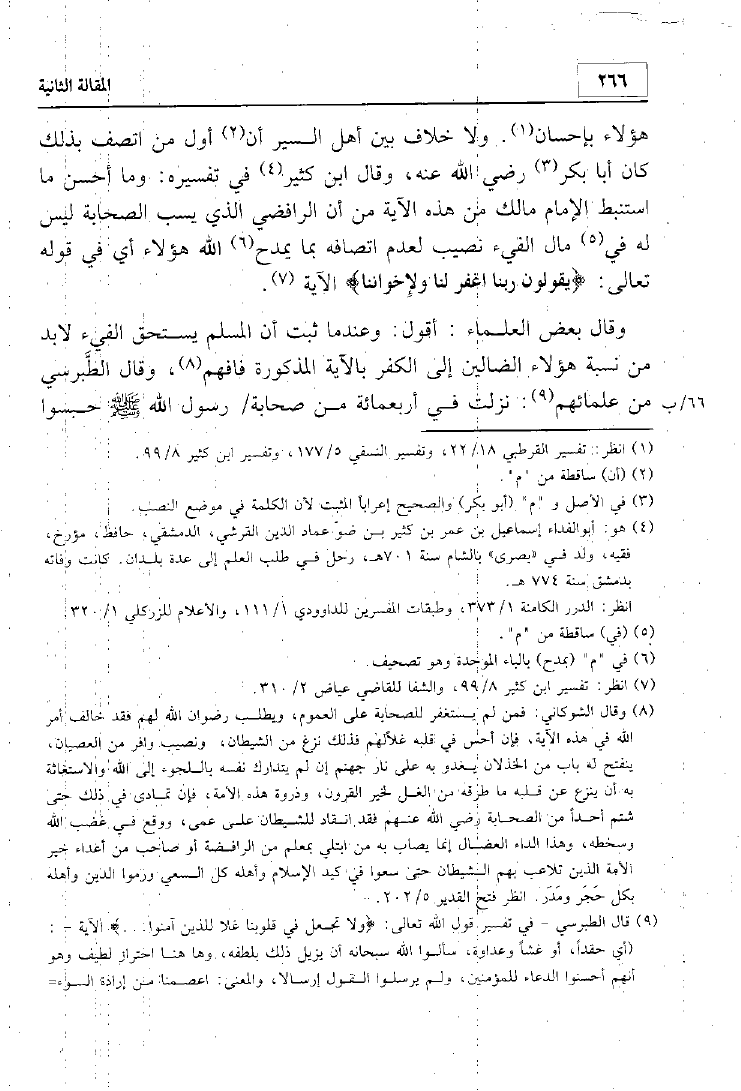 ٢٦٦ المقالة الثانية
هؤلاء بإحسان(١). ولا خلاف بين أهل السير أن(٢) أول من اتصف بذلك
كان أبا بكر(٣) رضي الله عنه، وقال ابن كثير(٤) في تفسيره: وما أحسن ما
استنبط الإمام مالك من هذه الآية من أن الرافضي الذي يسب الصحابة ليس
له في(٥) مال الفيء نصيب لعدم اتصافه بما يمدح(٦) الله هؤلاء أي في قوله
تعالى: ﴿يقولون ربنا اغفر لنا ولإخواننا﴾ الآية (٧).
وقال بعض العلماء : أقول: وعندما ثبت أن المسلم يستحق الفيء لابد
من نسبة هؤلاء الضالين إلى الكفر بالآية المذكورة فافهم(٨)، وقال الطَّبرسي
من علمائهم(٩): نزلت في أربعمائة من صحابة/ رسول الله ﷺ حبسوا ٦٦/ب
(١) انظر: تفسير القرطبي ٢٢/١٨، وتفسير النسفي ١٧٧/٥، وتفسير ابن كثير ٩٩/٨.
(٢) (أن) ساقطة من "م".
(٣) في الأصل و "م" (أبو بكر) والصحيح إعراباً المثبت لأن الكلمة في موضع النصب.
(٤) هو: أبوالفداء إسماعيل بن عمر بن كثير بن ضوّ عماد الدين القرشي، الدمشقي، حافظ، مؤرخ،
فقيه، ولد في «بصرى» بالشام سنة ٧٠١هـ، رحل في طلب العلم إلى عدة بلدان. كانت وفاته
بدمشق سنة ٧٧٤ هـ.
انظر: الدرر الكامنة ٣٧٣/١، وطبقات المفسرين للداوودي ١١١/١، والأعلام للزركلي ٣٢٠/١
(٥) (في) ساقطة من "م".
(٦) في "م" (بمدح) بالباء الموحدة وهو تصحيف.
(٧) انظر: تفسير ابن كثير ٩٩/٨، والشفا للقاضي عياض ٣١٠/٢.
(٨) وقال الشوكاني: فمن لم يستغفر للصحابة على العموم، ويطلب رضوان الله لهم فقد خالف أمر
الله في هذه الآية، فإن أحس في قلبه غلاًلهم فذلك نزغ من الشيطان، ونصيب وافر من العصيان،
ينفتح له باب من الخذلان يغدو به على نار جهنم إن لم يتدارك نفسه باللجوء إلى الله والاستغاثة
به أن ينزع عن قلبه ما طرقه من الغل لخير القرون، وذروة هذه الأمة، فإن تمادى في ذلك حتى
شتم أحداً من الصحابة رضي الله عنهم فقد انقاد للشيطان على عمى، ووقع في غضب الله
وسخطه، وهذا الداء العضال إنما يصاب به من ابتلي بمعلم من الرافضة أو صاحب من أعداء خير
الأمة الذين تلاعب بهم الشيطان حتى سعوا في كيد الإسلام وأهله كل السعي ورموا الدين وأهله
بكل حَجَر ومَدَر. انظر فتح القدير ٢٠٢/٥.
(٩) قال الطبرسي - في تفسير قول الله تعالى: ﴿ولا تجعل في قلوبنا غلا للذين آمنوا...﴾ الآية - :
(أي حقداً، أو غشاً وعداوة، سألوا الله سبحانه أن يزيل ذلك بلطفه، وها هنا احتراز لطيف وهو
أنهم أحسنوا الدعاء للمؤمنين، ولم يرسلوا القول إرسالا، والمعنى: اعصمنا من إرادة السوء=